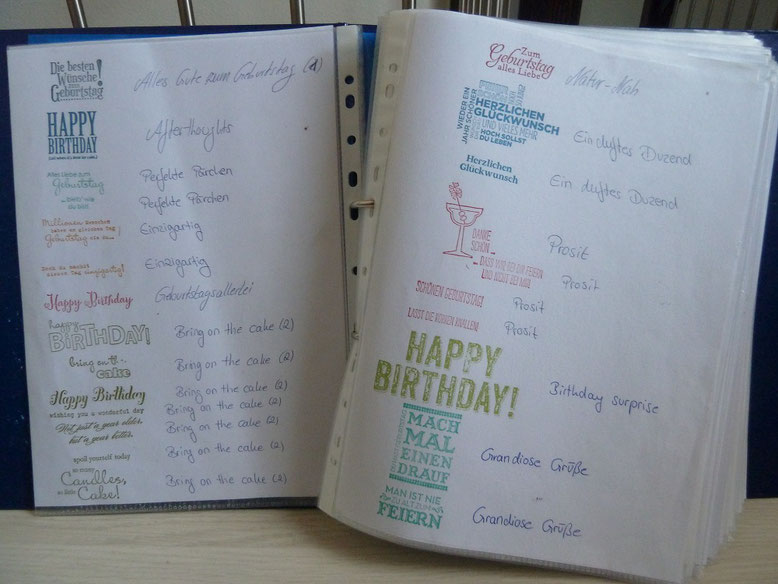 Die besten
Wünsche
Geburtstag!
Alles Gute zum Geburtstag (1)
HAPPY
BIRTHDAY
Afterthoughts
Alles Liebe zum
Geburtstag
Perfekte Pärchen
Perfekte Pärchen
Einzigartig
Geburtstag
Einzigartig
Happy Birthday
Geburtstagsallerlei
happy
BIRTHDAY!
Bring on the cake (2)
bring on the
cake
Bring on the cake (2)
Happy Birthday
wishing you a wonderful day
Bring on the cake (2)
Bring on the cake (2)
Not just a year older,
but a year better.
Bring on the cake (2)
spoil yourself today
Bring on the cake (2)
so many
Candles,
so little
Cake!
Bring on the cake (2)
Zum
Geburtstag
alles Liebe
Natur-Nah
WIEDER EIN
JAHR SCHÖNER
HERZLICHEN
GLÜCKWUNSCH
UND VIELES MEHR
HOCH SOLLST
DU LEBEN
Ein duftes Duzend
Herzlichen
Glückwunsch
Ein duftes Duzend
DANKE
SCHÖN ...
Prosit
... DASS WIR BEI DIR FEIERN
UND NICHT BEI MIR.
Prosit
SCHÖNEN GEBURTSTAG!
Prosit
LASST DIE KORKEN KNALLEN!
Prosit
HAPPY
BIRTHDAY!
Birthday surprise
MACH
MAL
EINEN
DRAUF
Grandiose Grüße
MAN IST NIE
ZU ALT ZUM
FEIERN
Grandiose Grüße